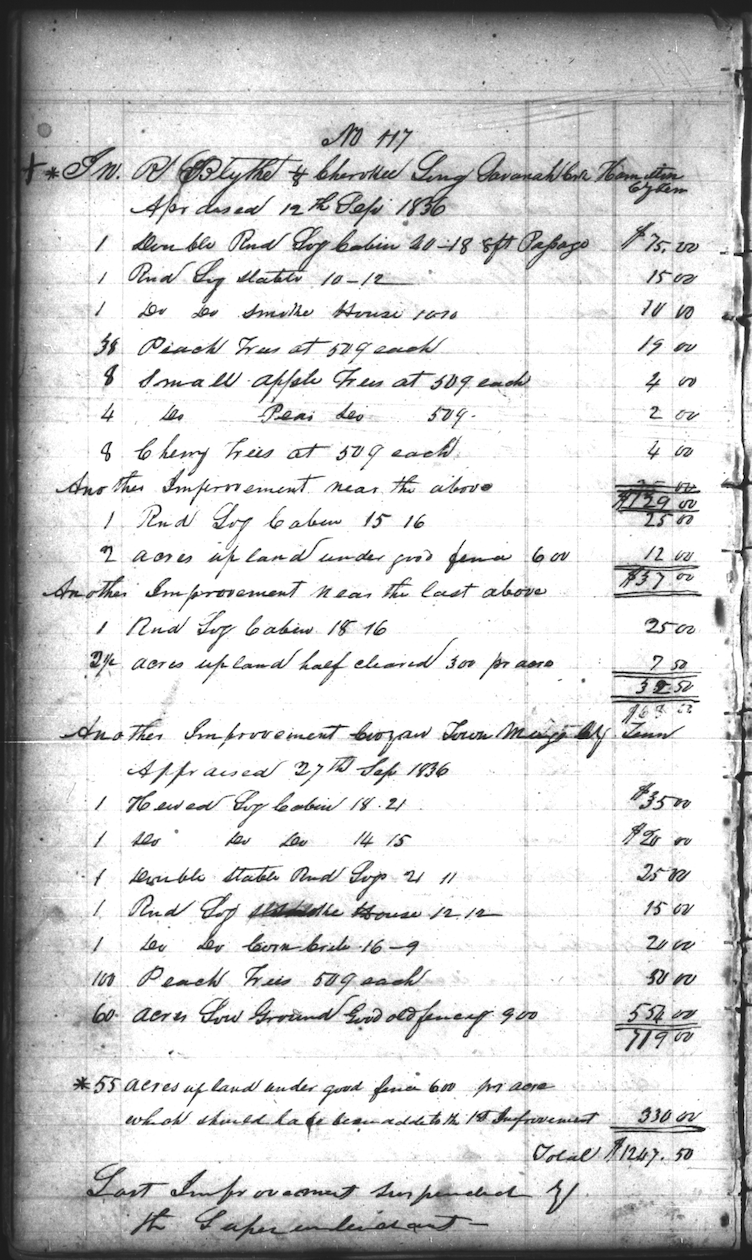 No 117
+ * Jn. R Blythe & Cherokee Living Savanah Crk Hamilton
Appraised 12th Sep 1836
1 Double Rnd Log Cabin 40-18 8ft Passage $75.00
1 Rnd Log Stable 10-12 15 00
1 Do Do Smoke House 10 10 10 00
38 Peach Trees at 50¢ each 19 00
8 Small apple Trees at 50¢ each 4 00
4 Do Pear Do 50¢ 2 00
8 Cherry Trees at 50¢ each 4 00
Another Improvement near the above $129 00
1 Rnd Log Cabin 15 16 25 00
2 acres upland under good fence 600 12 00
$37 00
Another Improvement near the last above
1 Rnd Log Cabin 18 16 25 00
2½ acres upland half cleared 300 pr acre 7 50
32 50
Another Improvement Town Meigs Cty Tenn
Appraised 27th Sep 1836
1 Hewed Log Cabin 18-21 $35 00
1 Do Do Do 14 15 $20 00
1 Double Stable Rnd Logs 21 11 25 00
1 Rnd Log Smoke House 12 12 15 00
1 Do Do Corn Crib 16-9 20 00
100 Peach Trees 50¢ each 50 00
60 acres Low Ground Good old fencing 900 554 00
719 00
* 55 acres upland under good fence 600 pr acre
which should have been added to the 1st Improvement 330 00
Total $1247.50
Last Improvement suspended by
the Superintendant